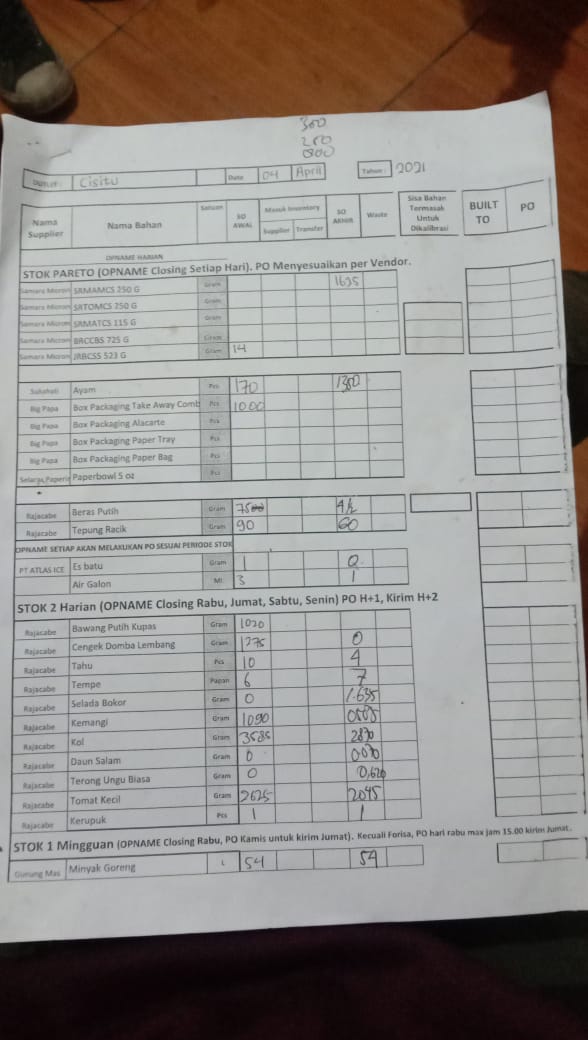 300
250
300
Outlet : Cisitu Date 04 April Tahun : 2021
Nama Supplier Nama Bahan Satuan SO AWAL Masuk Inventory Supplier Transfer SO AKHIR Waste Sisa Bahan Termasak Untuk Dikalibrasi BUILT TO PO
OPNAME HARIAN
STOK PARETO (OPNAME Closing Setiap Hari). PO Menyesuaikan per Vendor.
Samara Micron SRMAMCS 250 G Gram 1625
Samara Micron SRTOMCS 250 G Gram
Samara Micron SRMATCS 115 G Gram
Samara Micron BRCCBS 725 G Gram
Samara Micron JRBCSS 523 G Gram 14
Sukahati Ayam Pcs 170 1350
Big Papa Box Packaging Take Away Comb Pcs 1000
Big Papa Box Packaging Alacarte Pcs
Big Papa Box Packaging Paper Tray Pcs
Big Papa Box Packaging Paper Bag Pcs
Selarga,Paperis Paperbowl 5 oz Pcs
Rajacabe Beras Putih Gram
Rajacabe Tepung Racik Gram 90 60
OPNAME SETIAP AKAN MELAKUKAN PO SESUAI PERIODE STOK
PT ATLAS ICE Es batu Gram 1 0
Air Galon Ml 3 1
STOK 2 Harian (OPNAME Closing Rabu, Jumat, Sabtu, Senin) PO H+1, Kirim H+2
Rajacabe Bawang Putih Kupas Gram 1020
Rajacabe Cengek Domba Lembang Gram 1275 0
Rajacabe Tahu Pcs 10 4
Rajacabe Tempe Papan 6 7
Rajacabe Selada Bokor Gram 0 1.635
Rajacabe Kemangi Gram 1090
Rajacabe Kol Gram 3585 2830
Rajacabe Daun Salam Gram 0
Rajacabe Terong Ungu Biasa Gram 0 0,620
Rajacabe Tomat Kecil Gram 2625 2045
Rajacabe Kerupuk Pcs 1 1
STOK 1 Mingguan (OPNAME Closing Rabu, PO Kamis untuk kirim Jumat). Kecuali Forisa, PO hari rabu max jam 15.00 kirim Jumat.
Gunung Mas Minyak Goreng L 54 54